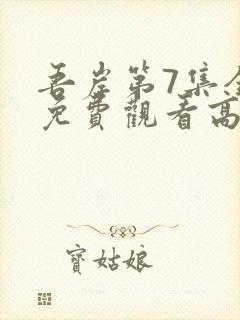 吾岸第7集全
免費觀看高
寶姑娘